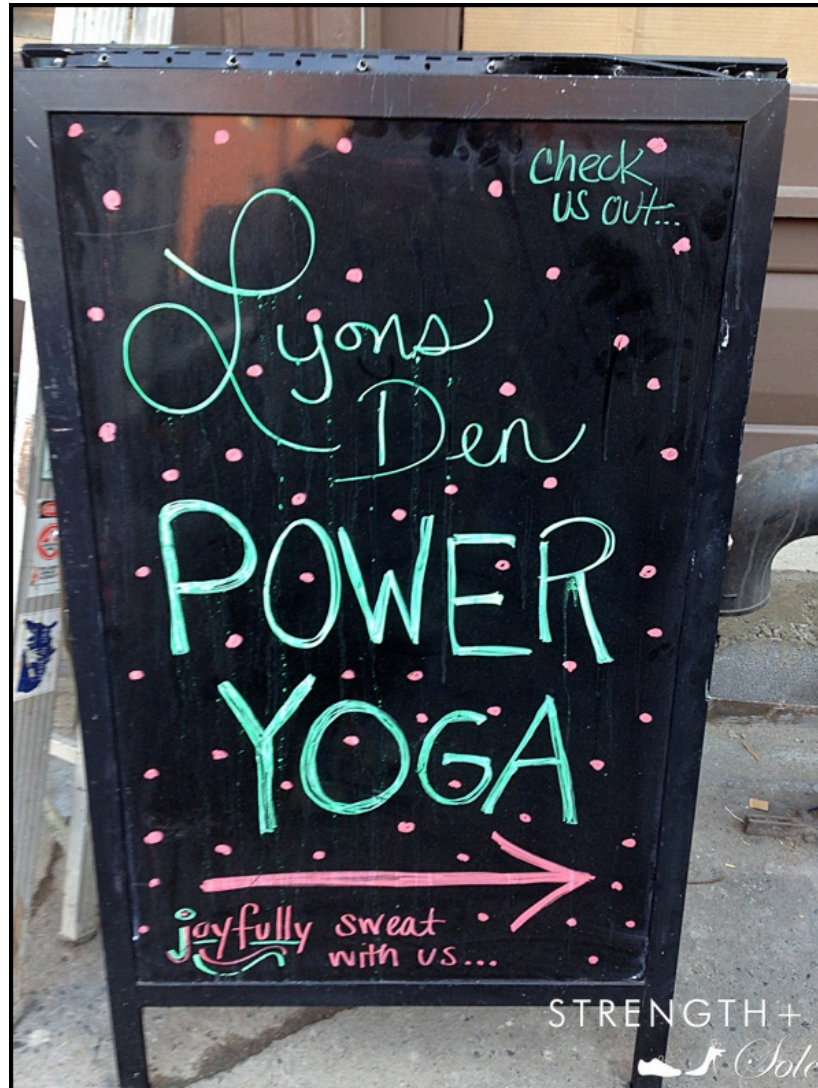 check
us out...
Lyons
Den
POWER
YOGA
joyfully sweat
with us...
STRENGTH+
Sole